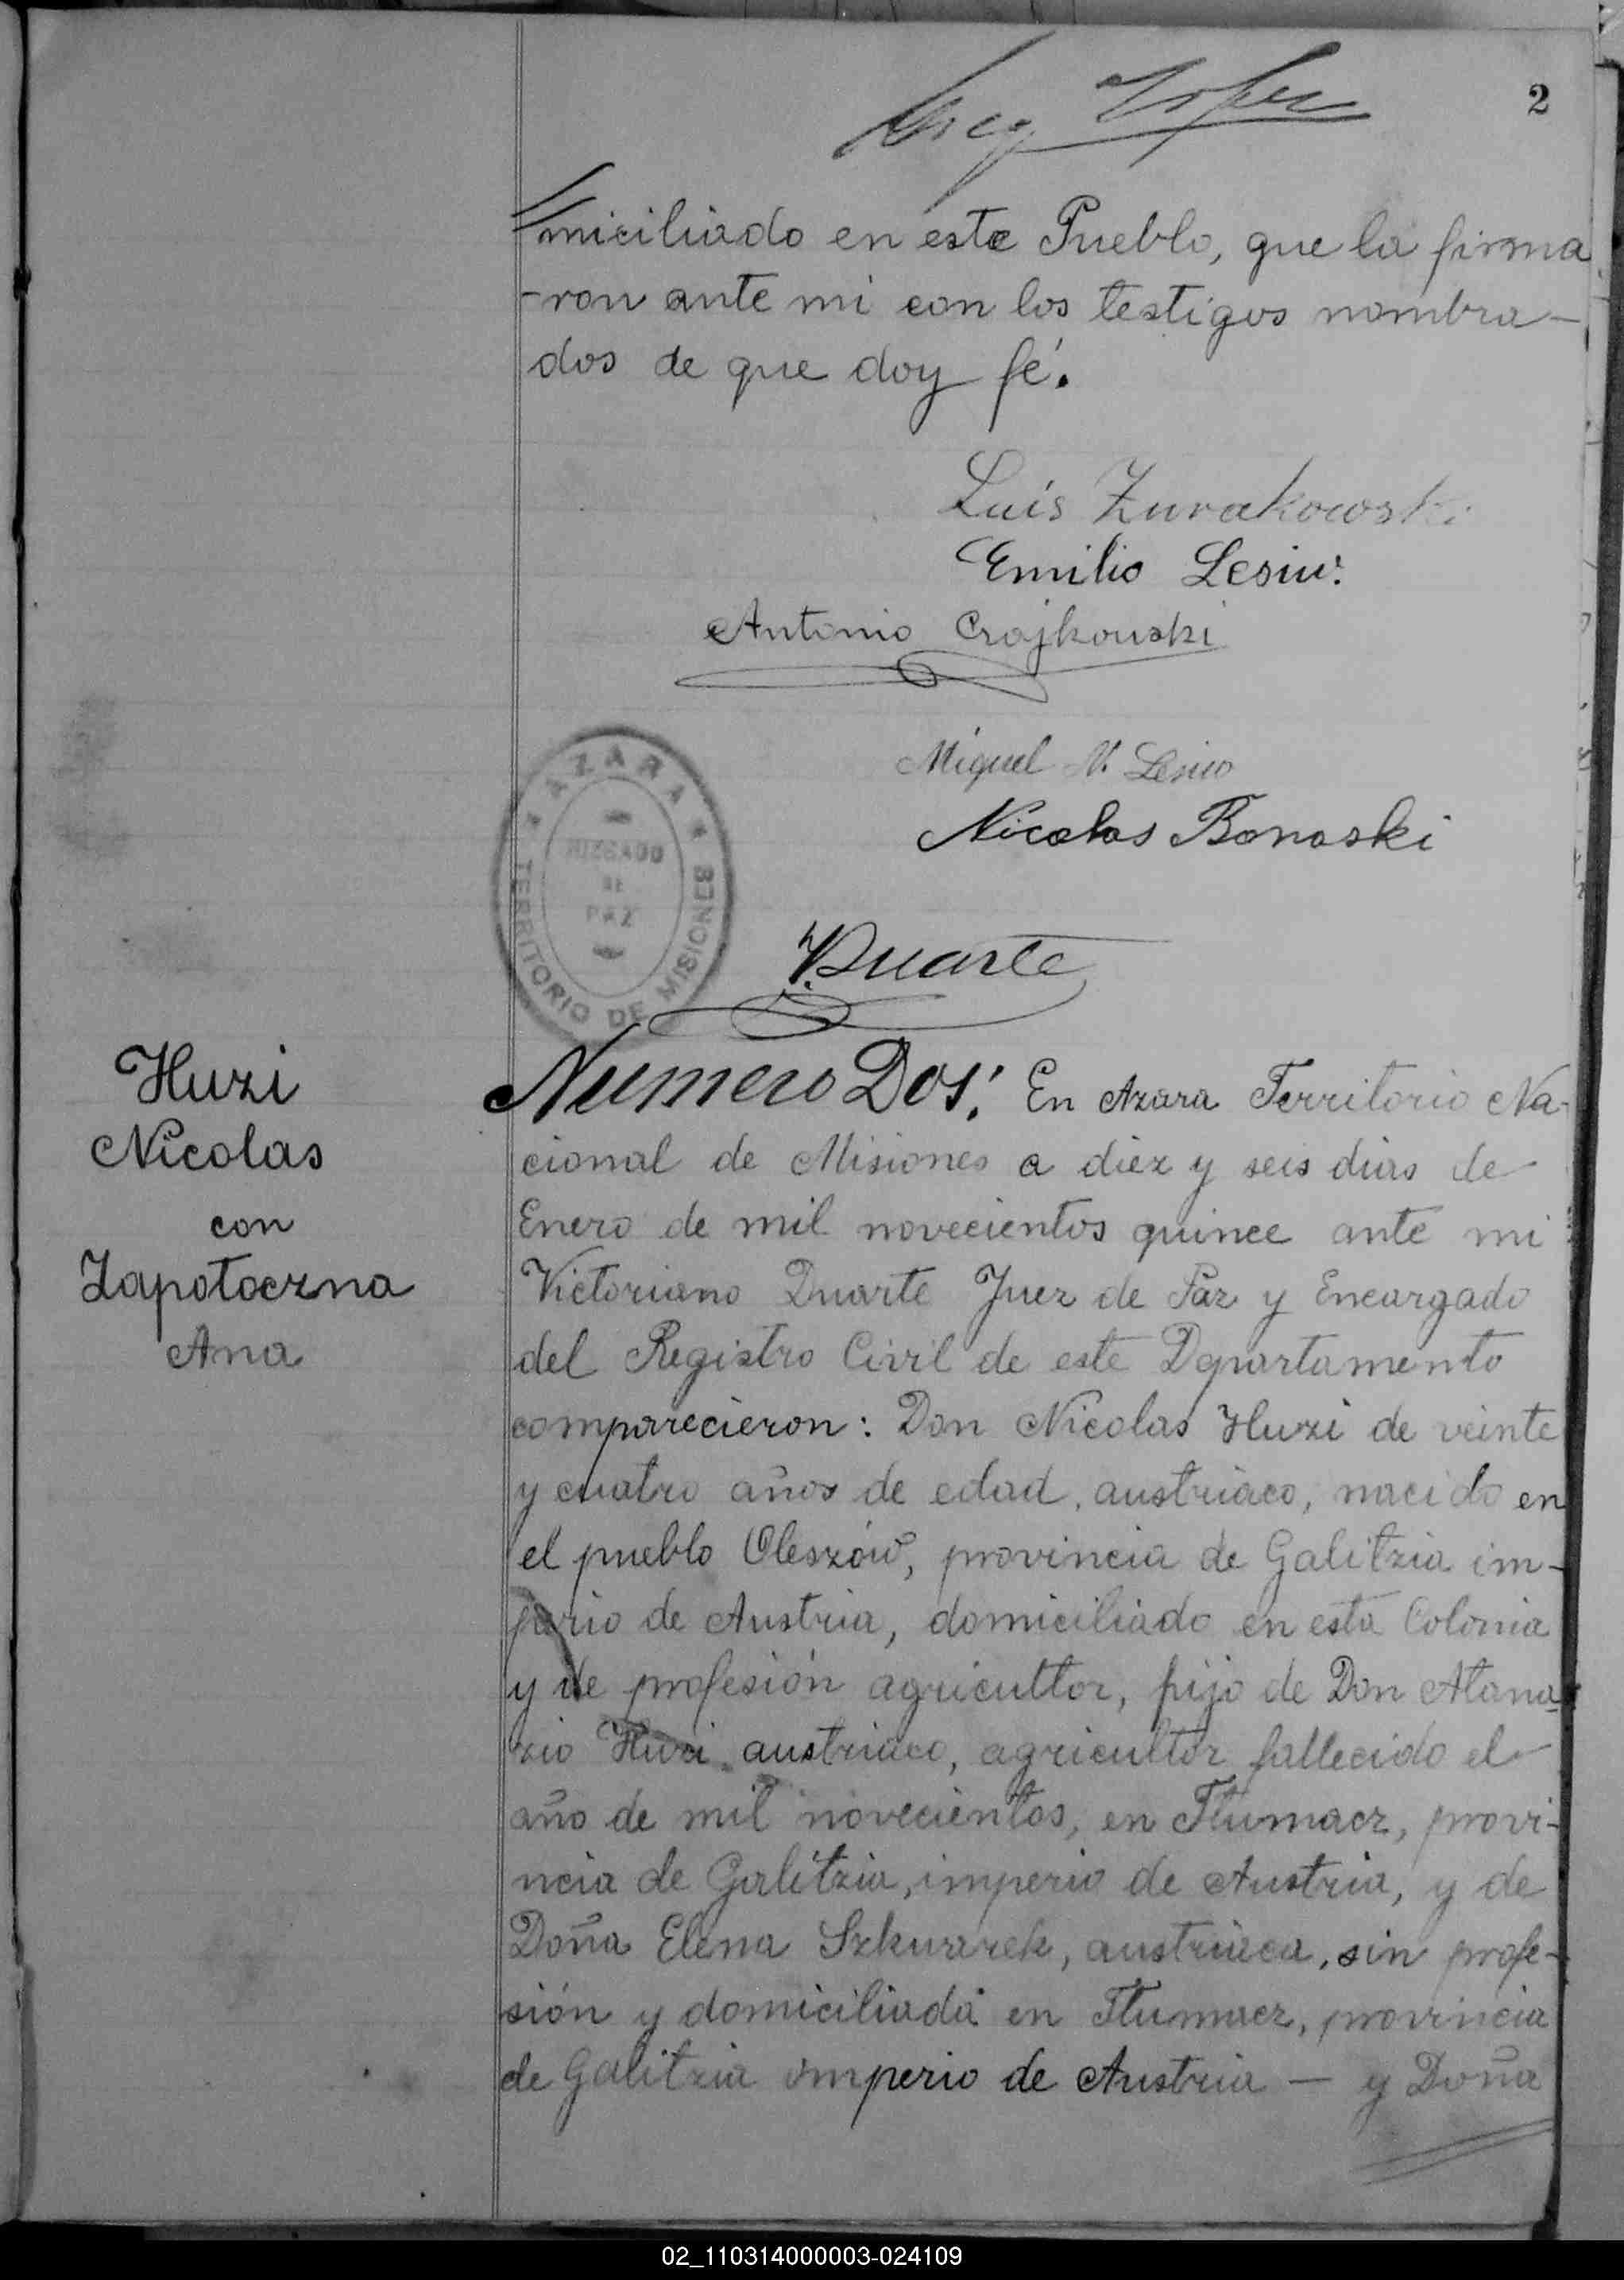 2
miciliado en este Pueblo, que la firma
-ron ante mi con los testigos nombra-
dos de que doy fé.
Luis Zurakowski
Emilio Lesiw.
Antonio Czajkouski
Miguel N. Lesiw
Nicolas Bonoski
AZARA
JUZGADO
DE
PAZ
TERRITORIO DE MISIONES
V. Duarte
Huzi
Nicolas
con
Zapotoczna
Ana
Numero Dos: En Azara Territorio Na-
cional de Misiones a diez y seis dias de
Enero de mil novecientos quince ante mi
Victoriano Duarte Juez de Paz y Encargado
del Registro Civil de este Departamento
comparecieron: Don Nicolas Huzi de veinte
y cuatro años de edad, austriaco, nacido en
el pueblo Oleszów, provincia de Galitzia im-
perio de Austria, domiciliado en esta Colonia
y de profesión agricultor, hijo de Don Atana
zio Huzi austriaco, agricultor fallecido el
año de mil novecientos, en Tlumacz, provi-
ncia de Galitzia, imperio de Austria, y de
Doña Elena Szkwarek, austriaca, sin profe-
sión y domiciliada en Tlumacz, provincia
de Galitzia imperio de Austria — y Doña
02_110314000003-024109